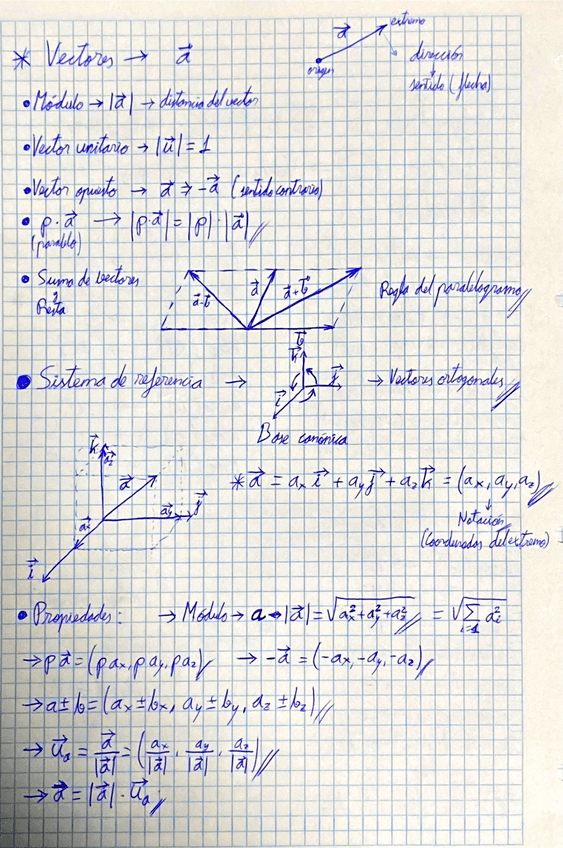 * Vectores → a⃗
a⃗ extremo
origen
dirección
↓
sentido (flecha)
• Módulo → |a⃗| → distancia del vector
• Vector unitario → |u⃗| = 1
• Vector opuesto → a⃗ ⇒ -a⃗ (sentido contrario)
• p · a⃗ → |p·a⃗| = |p| · |a⃗| //
(paralelo)
• Suma de vectores
y
Resta
a⃗-b⃗ a⃗ a⃗+b⃗
b⃗
Regla del paralelogramo //
• Sistema de referencia → → Vectores ortogonales //
k⃗
i⃗ j⃗
Base canónica
k⃗
a_z
a⃗
a_y j⃗
i⃗
* a⃗ = a_x i⃗ + a_y j⃗ + a_z k⃗ = (a_x, a_y, a_z) //
↓
Notación
(Coordenadas del extremo)
• Propiedades: → Módulo → a → |a⃗| = √(a_x² + a_y² + a_z²) // = √(∑_{i=1} a_i²)
→ p a⃗ = (p a_x, p a_y, p a_z) // → -a⃗ = (-a_x, -a_y, -a_z) //
→ a ± b = (a_x ± b_x, a_y ± b_y, a_z ± b_z) //
→ u⃗_a = a⃗/|a⃗| = (a_x/|a⃗|, a_y/|a⃗|, a_z/|a⃗|) //
→ a⃗ = |a⃗| · u⃗_a //